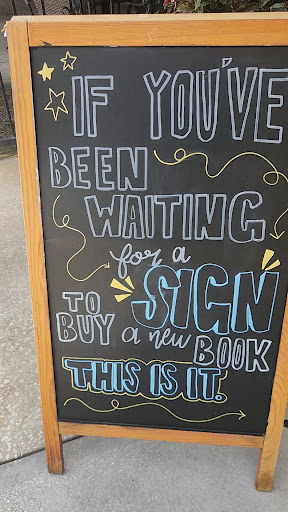 IF YOU'VE
BEEN
WAITING
for a
SIGN
TO
BUY a new BOOK
THIS IS IT.